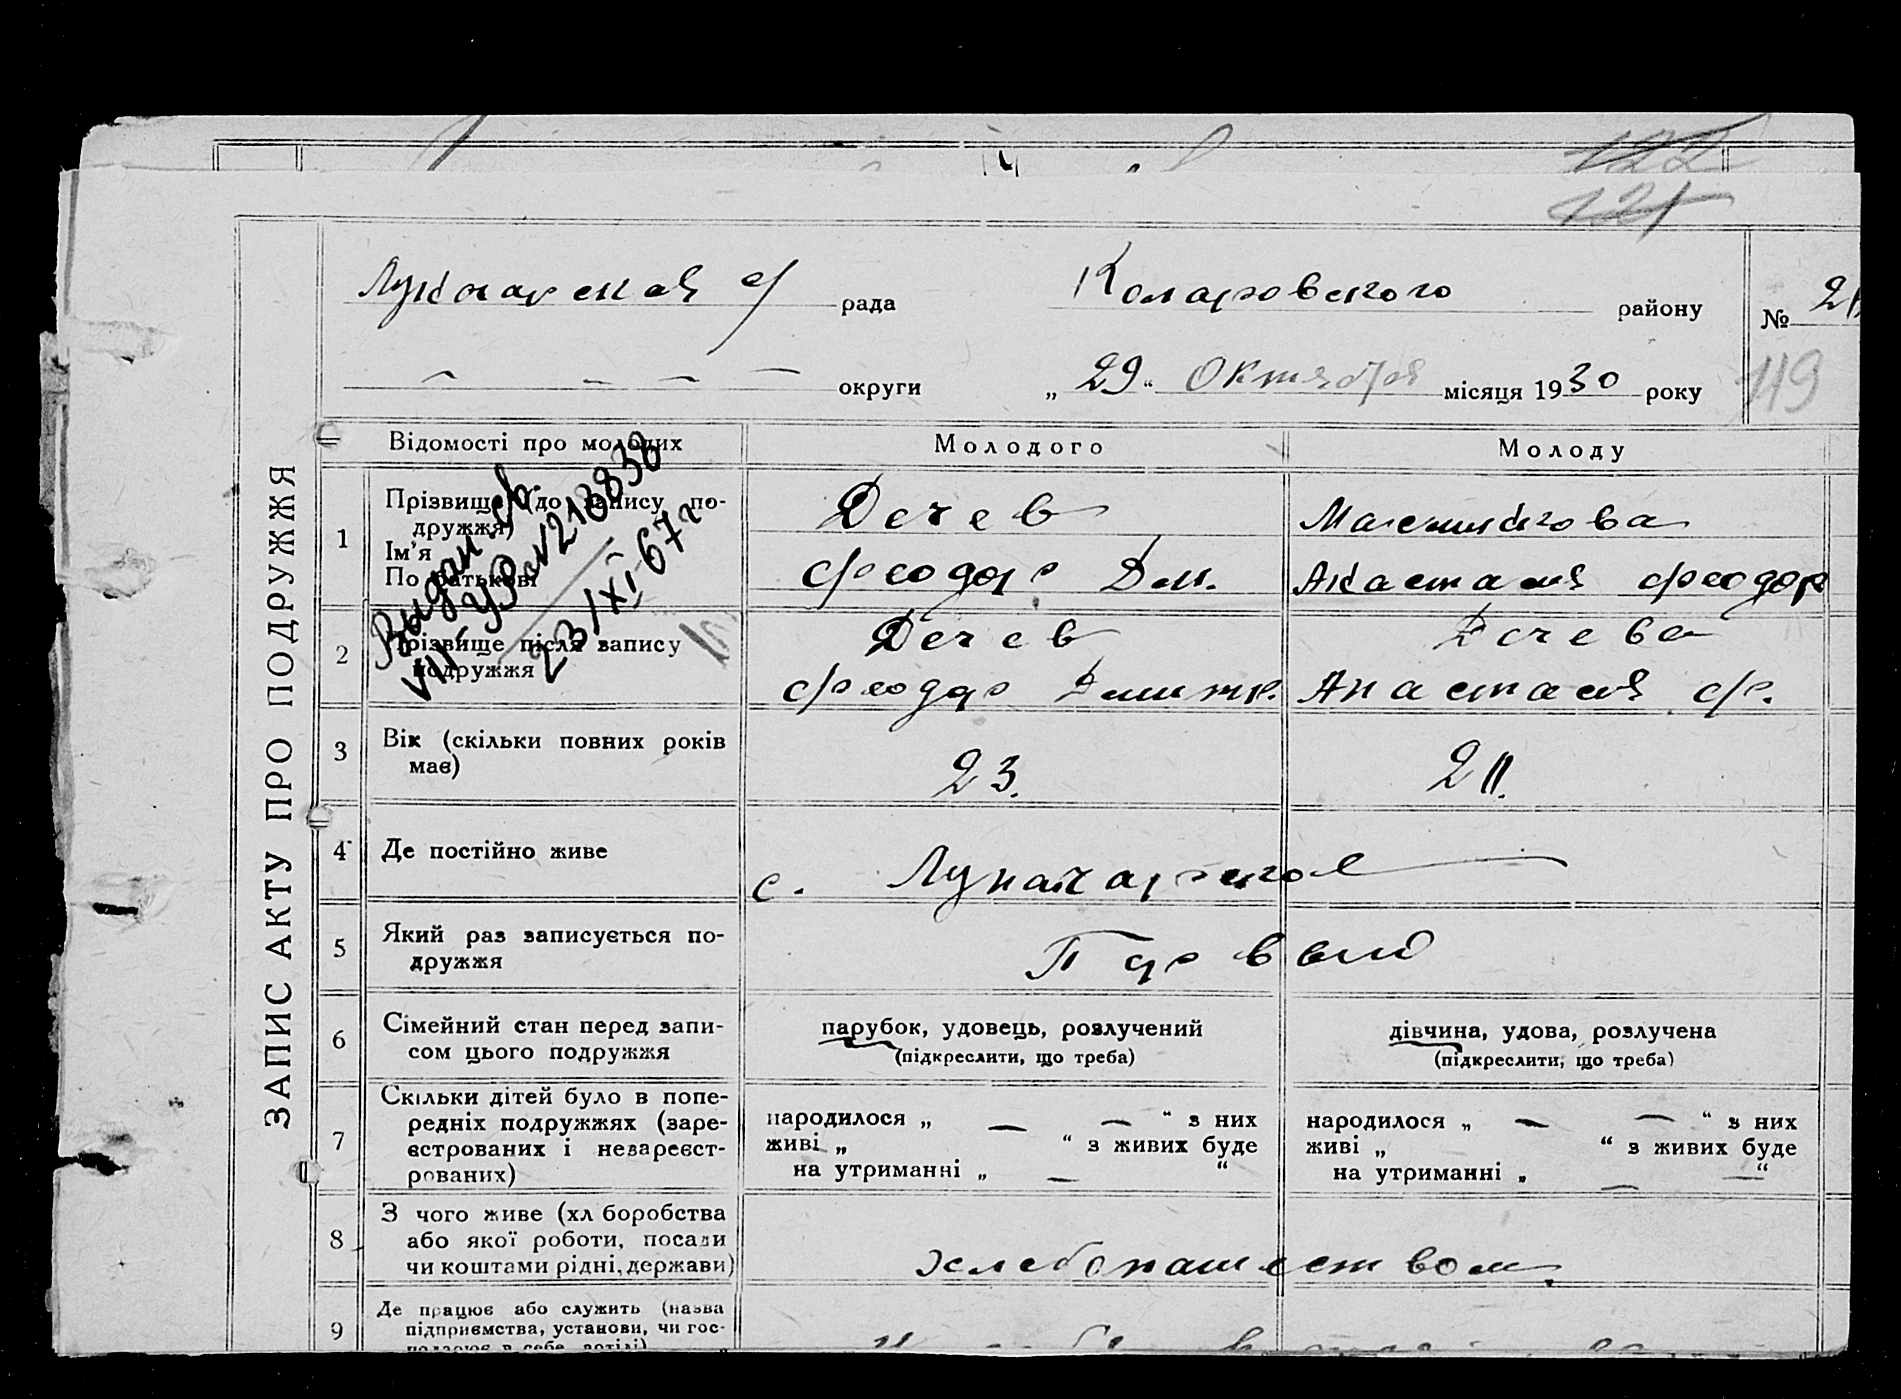 122
121
Луначарская с/ рада Коларовского району № 21
— — — — округи „ 29 “ Октября місяця 1930 року 119
ЗАПИС АКТУ ПРО ПОДРУЖЖЯ
Відомості про молодих Молодого Молоду
1 Прізвище (до запису по-
дружжя)
Ім'я
По батькові
Дечев
Феодор Дм.
Анастасия Феодор
Выдан св.
VII-УР №218838
23/XI-67г
2 Прізвище після запису
подружжя
Дечев Дечева
Феодор Дмитр. Анастасия Ф.
3 Вік (скільки повних років
має)
23. 21.
4 Де постійно живе с. Луначарское
5 Який раз записується по-
дружжя
Первый
6 Сімейний стан перед запи-
сом цього подружжя
парубок, удовець, розлучений
(підкреслити, що треба)
дівчина, удова, розлучена
(підкреслити, що треба)
7 Скільки дітей було в попе-
редніх подружжях (заре-
єстрованих і незареєст-
рованих)
народилося „ — — “ з них
живі „ “ з живих буде
на утриманні „ — “
народилося „ — — “ з них
живі „ “ з живих буде
на утриманні „ — — “
8 З чого живе (хліборобства
або якої роботи, посади
чи коштами рідні, держави)
хлебопашеством.
9 Де працює або служить (назва
підприємства, установи, чи гос-